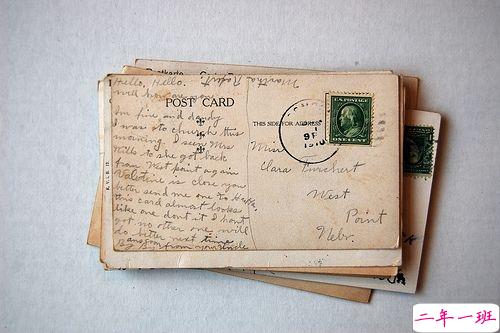 Postkarte
Hello, Hello.
well how are you
POST CARD
Im fine and dandy
I was to church this
morning. I seen Mrs
Mills to she got back
from West point again
Valentine is close you
better send me one to Ha Ha.
this card almost looks
like one dont it I hant
got no other one will
do better next time
from your
THIS SIDE FOR ADDRESS
U.S. POSTAGE
ONE CENT
9 P
1910
Miss
Clara
West
Point
Nebr.
二年一班